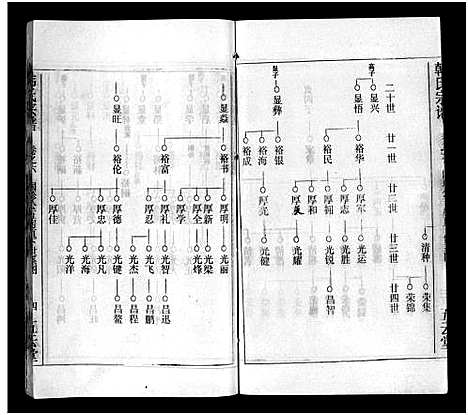 韩氏宗谱
二十世
廿一世
廿二世
廿三世
廿四世
显兴
显悟
显彝
裕华
裕民
裕银
裕海
裕成
厚军
厚志
厚刚
厚和
厚光
清种
光庆
光胜
光锐
光耀
光健
荣集
荣锦
昌智
显焱
显旺
裕书
裕富
裕伦
厚明
厚新
厚全
厚学
厚礼
厚忍
厚德
厚忠
厚佳
光丽
光梁
光烽
光智
光飞
光杰
光键
光凡
光海
光洋
昌迅
昌鹏
昌程
昌莹
四